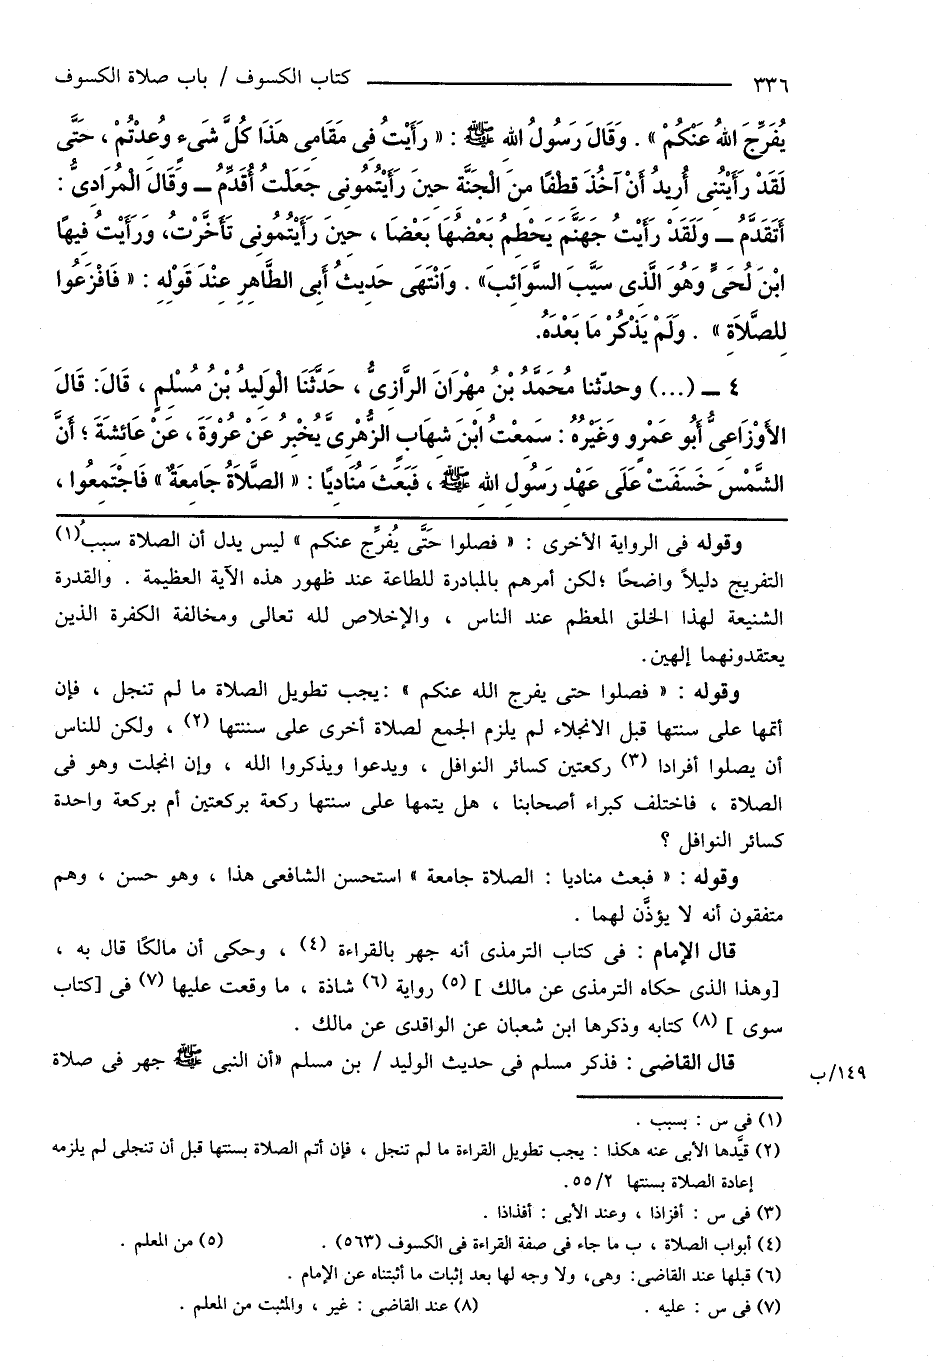 ٣٣٦ كتاب الكسوف / باب صلاة الكسوف
يُفَرِّجَ اللهُ عَنْكُمْ » . وَقَالَ رَسُولُ الله ﷺ : « رَأَيْتُ فِى مَقَامِى هَذَا كُلَّ شَىءٍ وُعِدْتُمْ ، حَتَّى
لَقَدْ رَأَيْتُنِى أُرِيدُ أَنْ آخُذَ قِطْفًا مِنَ الجَنَّةِ حِينَ رَأَيْتُمُونِى جَعَلْتُ أُقَدِّمُ ــ وَقَالَ المُرَادِىُّ :
أَتَقَدَّمُ ــ وَلَقَدْ رَأَيْتُ جَهَنَّمَ يَحْطِمُ بَعْضُهَا بَعْضًا ، حِينَ رَأَيْتُمُونِى تَأَخَّرْتُ، وَرَأَيْتُ فِيهَا
ابْنَ لُحَىٍّ وَهُوَ الَّذِى سَيَّبَ السَّوَائِبَ» . وَانْتَهَى حَدِيثُ أَبِى الطَّاهِرِ عِنْدَ قَوْلِهِ : « فَافْزَعُوا
لِلصَّلاَةِ » . وَلَمْ يَذْكُرْ مَا بَعْدَهُ.
٤ ــ (...) وحدّثنا مُحَمَّدُ بْنُ مِهْرَانَ الرَّازِىُّ ، حَدَّثَنَا الْوَلِيدُ بْنُ مُسْلِمٍ ، قَالَ: قَالَ
الأَوْزَاعِىُّ أَبُو عَمْرٍو وَغَيْرُهُ : سَمِعْتُ ابْنَ شِهَابٍ الزُّهْرِىَّ يُخْبِرُ عَنْ عُرْوَةَ ، عَنْ عَائِشَةَ ؛ أَنَّ
الشَّمْسَ خَسَفَتْ عَلَى عَهْدِ رَسُولِ اللهِ ﷺ ، فَبَعَثَ مُنَادِيًا : « الصَّلاَةُ جَامِعَةٌ » فَاجْتَمَعُوا ،
وقوله فى الرواية الأخرى : « فصلوا حَتَّى يُفرِّج عنكم » ليس يدل أن الصلاة سببُ(١)
التفريج دليلاً واضحًا ؛لكن أمرهم بالمبادرة للطاعة عند ظهور هذه الآية العظيمة . والقدرة
الشنيعة لهذا الخلق المعظم عند الناس ، والإخلاص لله تعالى ومخالفة الكفرة الذين
يعتقدونهما إلهين.
وقوله : « فصلوا حتى يفرج الله عنكم » :يجب تطويل الصلاة ما لم تنجل ، فإن
أتمها على سنتها قبل الانجلاء لم يلزم الجمع لصلاة أخرى على سنتها (٢) ، ولكن للناس
أن يصلوا أفرادا (٣) ركعتين كسائر النوافل ، ويدعوا ويذكروا الله ، وإن انجلت وهو فى
الصلاة ، فاختلف كبراء أصحابنا ، هل يتمها على سنتها ركعة بركعتين أم بركعة واحدة
كسائر النوافل ؟
وقوله : « فبعث مناديا : الصلاة جامعة » استحسن الشافعى هذا ، وهو حسن ، وهم
متفقون أنه لا يؤذَّن لهما .
قال الإمام : فى كتاب الترمذى أنه جهر بالقراءة (٤) ، وحكى أن مالكًا قال به ،
[وهذا الذى حكاه الترمذى عن مالك ] (٥) رواية (٦) شاذة ، ما وقعت عليها (٧) فى [كتاب
سوى ] (٨) كتابه وذكرها ابن شعبان عن الواقدى عن مالك .
قال القاضى : فذكر مسلم فى حديث الوليد / بن مسلم «أن النبى ﷺ جهر فى صلاة
١٤٩/ب
(١) فى س : بسبب .
(٢) قيَّدها الأبى عنه هكذا : يجب تطويل القراءة ما لم تنجل ، فإن أتم الصلاة بسنتها قبل أن تنجلى لم يلزمه
إعادة الصلاة بسنتها ٥٥/٢.
(٣) فى س : أفزاذا ، وعند الأبى : أفذاذا .
(٤) أبواب الصلاة ، ب ما جاء فى صفة القراءة فى الكسوف (٥٦٣) . (٥) من المعلم .
(٦) قبلها عند القاضى: وهى، ولا وجه لها بعد إثبات ما أثبتناه عن الإمام .
(٧) فى س : عليه . (٨) عند القاضى : غير ، والمثبت من المعلم .